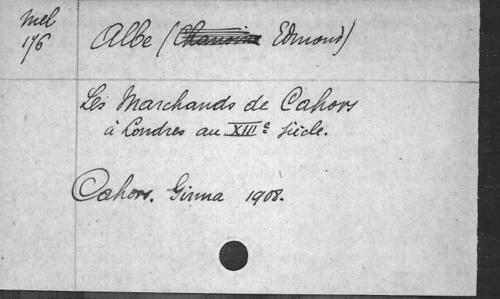 Mel
176
Albe (Chanoine Edmond)
Les Marchands de Cahors
à Londres au XIIIe siècle.
Cahors. Girma 1908.